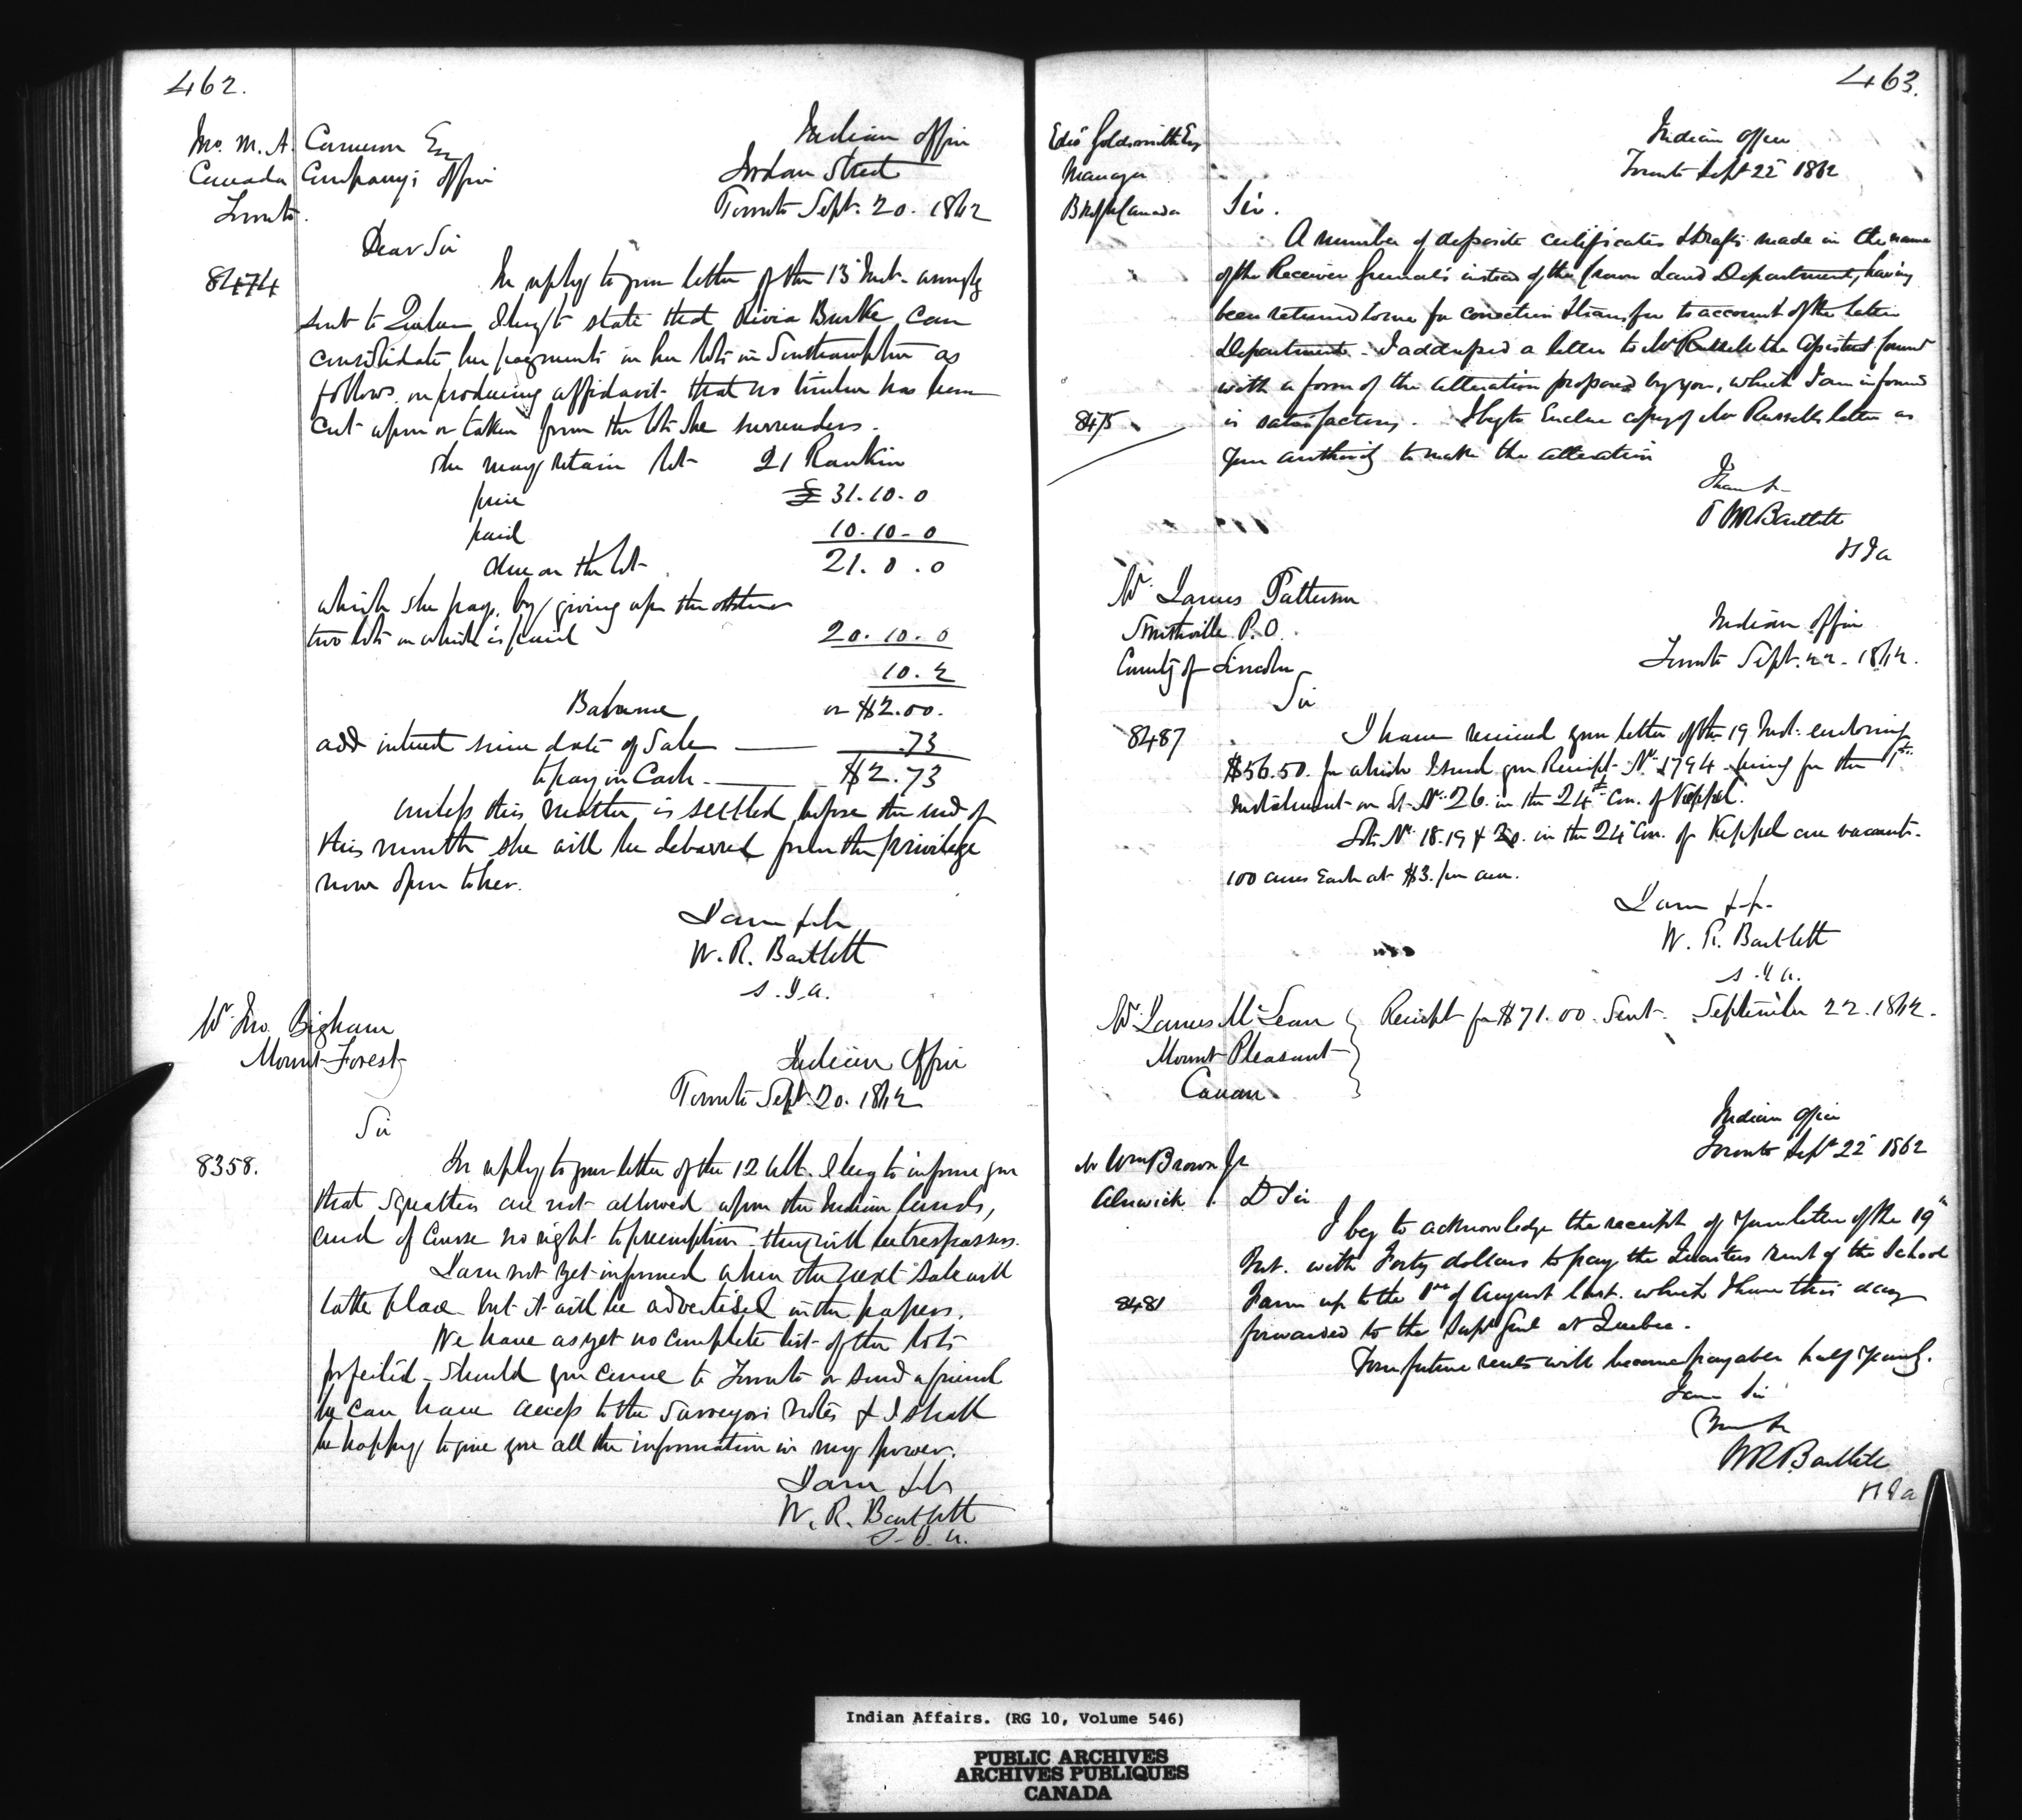 462.
Jno. M. A. Cameron Esq
Canada Company's Office
Toronto.
Indian Office
Jordan Street
Toronto Sept. 20. 1862
Dear Sir
8474
In reply to your letter of the 13 Inst. wrongly
sent to Quebec I beg to state that Livia Burke can
consolidate her payments in her lots in Southampton as
follows, on producing affidavit that no timber has been
cut upon or taken from the lots she surrenders.
She may retain lot 21 Rankin
price £31.10.0
paid 10.10.0
due on the lot 21.0.0
which she pays by giving up the other
two lots on which is paid 20.10.0
10.2
Balance or $2.00.
add interest since date of Sale .73
to pay in Cash $2.73
Unless this matter is settled before the end of
this month she will be debarred from the privilege
now open to her.
I am &c
W. R. Bartlett
S.I.A.
Mr. Jno. Bigham
Mount Forest
Indian Office
Toronto Sept. 20. 1862
Sir
8358.
In reply to your letter of the 12 Ult. I beg to inform you
that Squatters are not allowed upon the Indian lands,
and of Course no right to preemption - they will be trespassers.
I am not yet informed when the next Sale will
take place but it will be advertised in the papers.
We have as yet no complete list of the lots
forfeited - Should you come to Toronto or send a friend
he can have access to the Surveyors notes & I shall
be happy to give you all the information in my power.
I am &c
W. R. Bartlett
S.I.A.
463.
Edwd Goldsmith Esq
Manager
Bk of U Canada
Indian Office
Toronto Sept 22 1862
Sir.
A number of deposite certificates & drafts made in the name
of the Receiver General's instead of the Crown Land Department, having
been returned to me for correction & transfer to account of the latter
Department - I addressed a letter to Mr Russell the Assistant Commr
with a form of the alteration proposed by you, which I am informed
8475
is satisfactory. I beg to Enclose copy of Mr Russells letter as
your authority to make the alteration
I have &c
W R Bartlett
S I A
Mr. James Patterson
Smithville P.O.
County of Lincoln
Indian Office
Toronto Sept. 22. 1862.
Sir
8487
I have received your letter of the 19 Inst. enclosing
$56.50. for which I send you Receipt No. 1794 being for the 1st
Instalment on Lot No. 26. in the 24th Con. of Keppel.
Lots No. 18. 19 & 20. in the 24 Con. of Keppel are vacant.
100 acres Each at $3. per acre.
I am &c
W. R. Bartlett
S.I.A.
Mr. James McLean
Mount Pleasant
Cavan
Receipt for $71.00 Sent. September 22. 1862.
Indian Office
Toronto Sept 22 1862
Mr Wm Brown Jr
Alnwick
D Sir
I beg to acknowledge the receipt of your letter of the 19th
Inst. with Forty dollars to pay the Quarters rent of the School
8481
Farm up to the 1st of August last. which I have this day
forwarded to the Supt Genl at Quebec.
Your future rents will become payable half yearly.
I am Sir
W R Bartlett
S I A
Indian Affairs. (RG 10, Volume 546)
PUBLIC ARCHIVES
ARCHIVES PUBLIQUES
CANADA